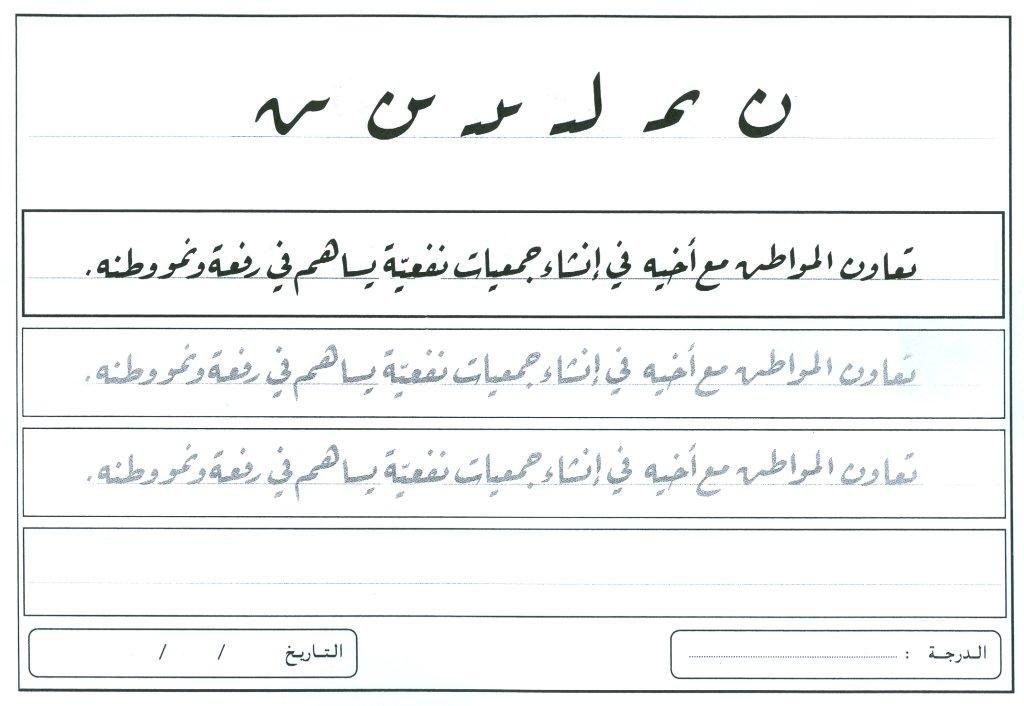 ن نـ لـن ـنـ ـن ـن
تعاون المواطن مع أخيه في إنشاء جمعيات نفعيّة يساهم في رفعة ونمو وطنه.
تعاون المواطن مع أخيه في إنشاء جمعيات نفعيّة يساهم في رفعة ونمو وطنه.
تعاون المواطن مع أخيه في إنشاء جمعيات نفعيّة يساهم في رفعة ونمو وطنه.
الدرجة : التاريخ / /